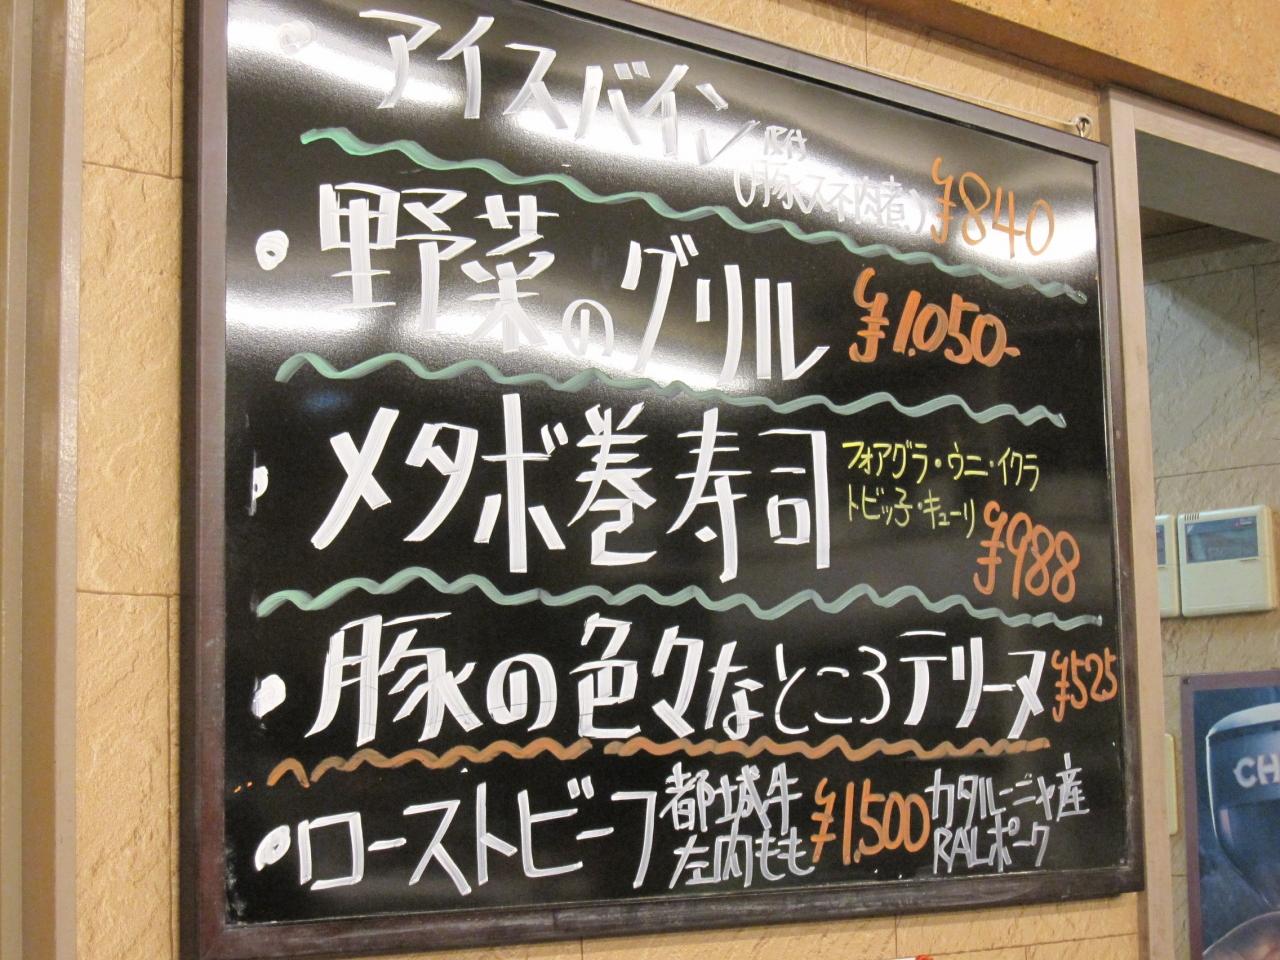 ・アイスバイン
骨付
(豚スネ肉煮) ¥840
・野菜のグリル ¥1.050-
・メタボ巻寿司
フォアグラ・ウニ・イクラ
トビッ子・キューリ
¥988
・豚の色々なところテリーヌ ¥525
・ローストビーフ
都城牛
左内もも
¥1,500
カタルーニャ産
RALポーク
CH